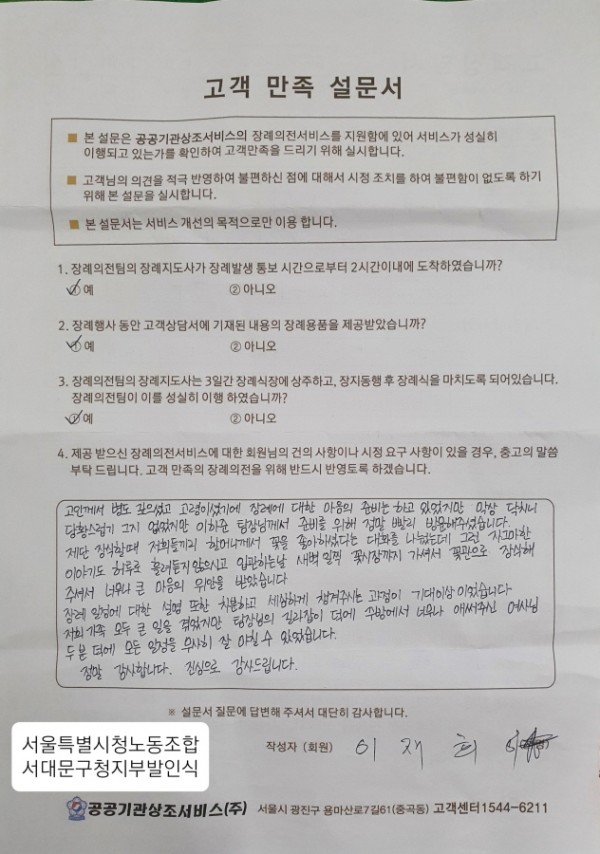 고객 만족 설문서
■ 본 설문은 공공기관상조서비스의 장례의전서비스를 지원함에 있어 서비스가 성실히
이행되고 있는가를 확인하여 고객만족을 드리기 위해 실시합니다.
■ 고객님의 의견을 적극 반영하여 불편하신 점에 대해서 시정 조치를 하여 불편함이 없도록 하기
위해 본 설문을 실시합니다.
■ 본 설문서는 서비스 개선의 목적으로만 이용 합니다.
1. 장례의전팀의 장례지도사가 장례발생 통보 시간으로부터 2시간이내에 도착하였습니까?
① 예 ② 아니오
2. 장례행사 동안 고객상담서에 기재된 내용의 장례용품을 제공받았습니까?
① 예 ② 아니오
3. 장례의전팀의 장례지도사는 3일간 장례식장에 상주하고, 장지동행 후 장례식을 마치도록 되어있습니다.
장례의전팀이 이를 성실히 이행 하였습니까?
① 예 ② 아니오
4. 제공 받으신 장례의전서비스에 대한 회원님의 건의 사항이나 시정 요구 사항이 있을 경우, 충고의 말씀
부탁 드립니다. 고객 만족의 장례의전을 위해 반드시 반영토록 하겠습니다.
고인께서 병도 깊으셨고 고령이셨기에 장례에 대한 마음의 준비는 하고 있었지만 막상 닥치니
당황스럽기 그지 없었지만 이하준 팀장님께서 준비를 위해 정말 빨리 방문해주셨습니다.
제단 장식할때 저희들끼리 할머니께서 꽃을 좋아하셨다는 대화를 나눴는데 그런 자그마한
이야기도 허투루 흘려듣지 않으시고 입관하는날 새벽 일찍 꽃시장까지 가셔서 꽃관으로 장식해
주셔서 너무나 큰 마음의 위안을 받았습니다.
장례 일정에 대한 설명 또한 차분하고 세심하게 챙겨주시는 과정이 기대이상 이었습니다.
저희 가족 모두 큰 일을 겪었지만 팀장님의 길라잡이 덕에 주방에서 너무나 애써주신 여사님
두분 덕에 모든 일정을 무사히 잘 마칠 수 있었습니다.
정말 감사합니다. 진심으로 감사드립니다.
※ 설문서 질문에 답변해 주셔서 대단히 감사합니다.
작성자 (회원) 이 재 희
서울특별시청노동조합
서대문구청지부발인식
공공기관상조서비스(주) 서울시 광진구 용마산로7길61(중곡동) 고객센터1544-6211